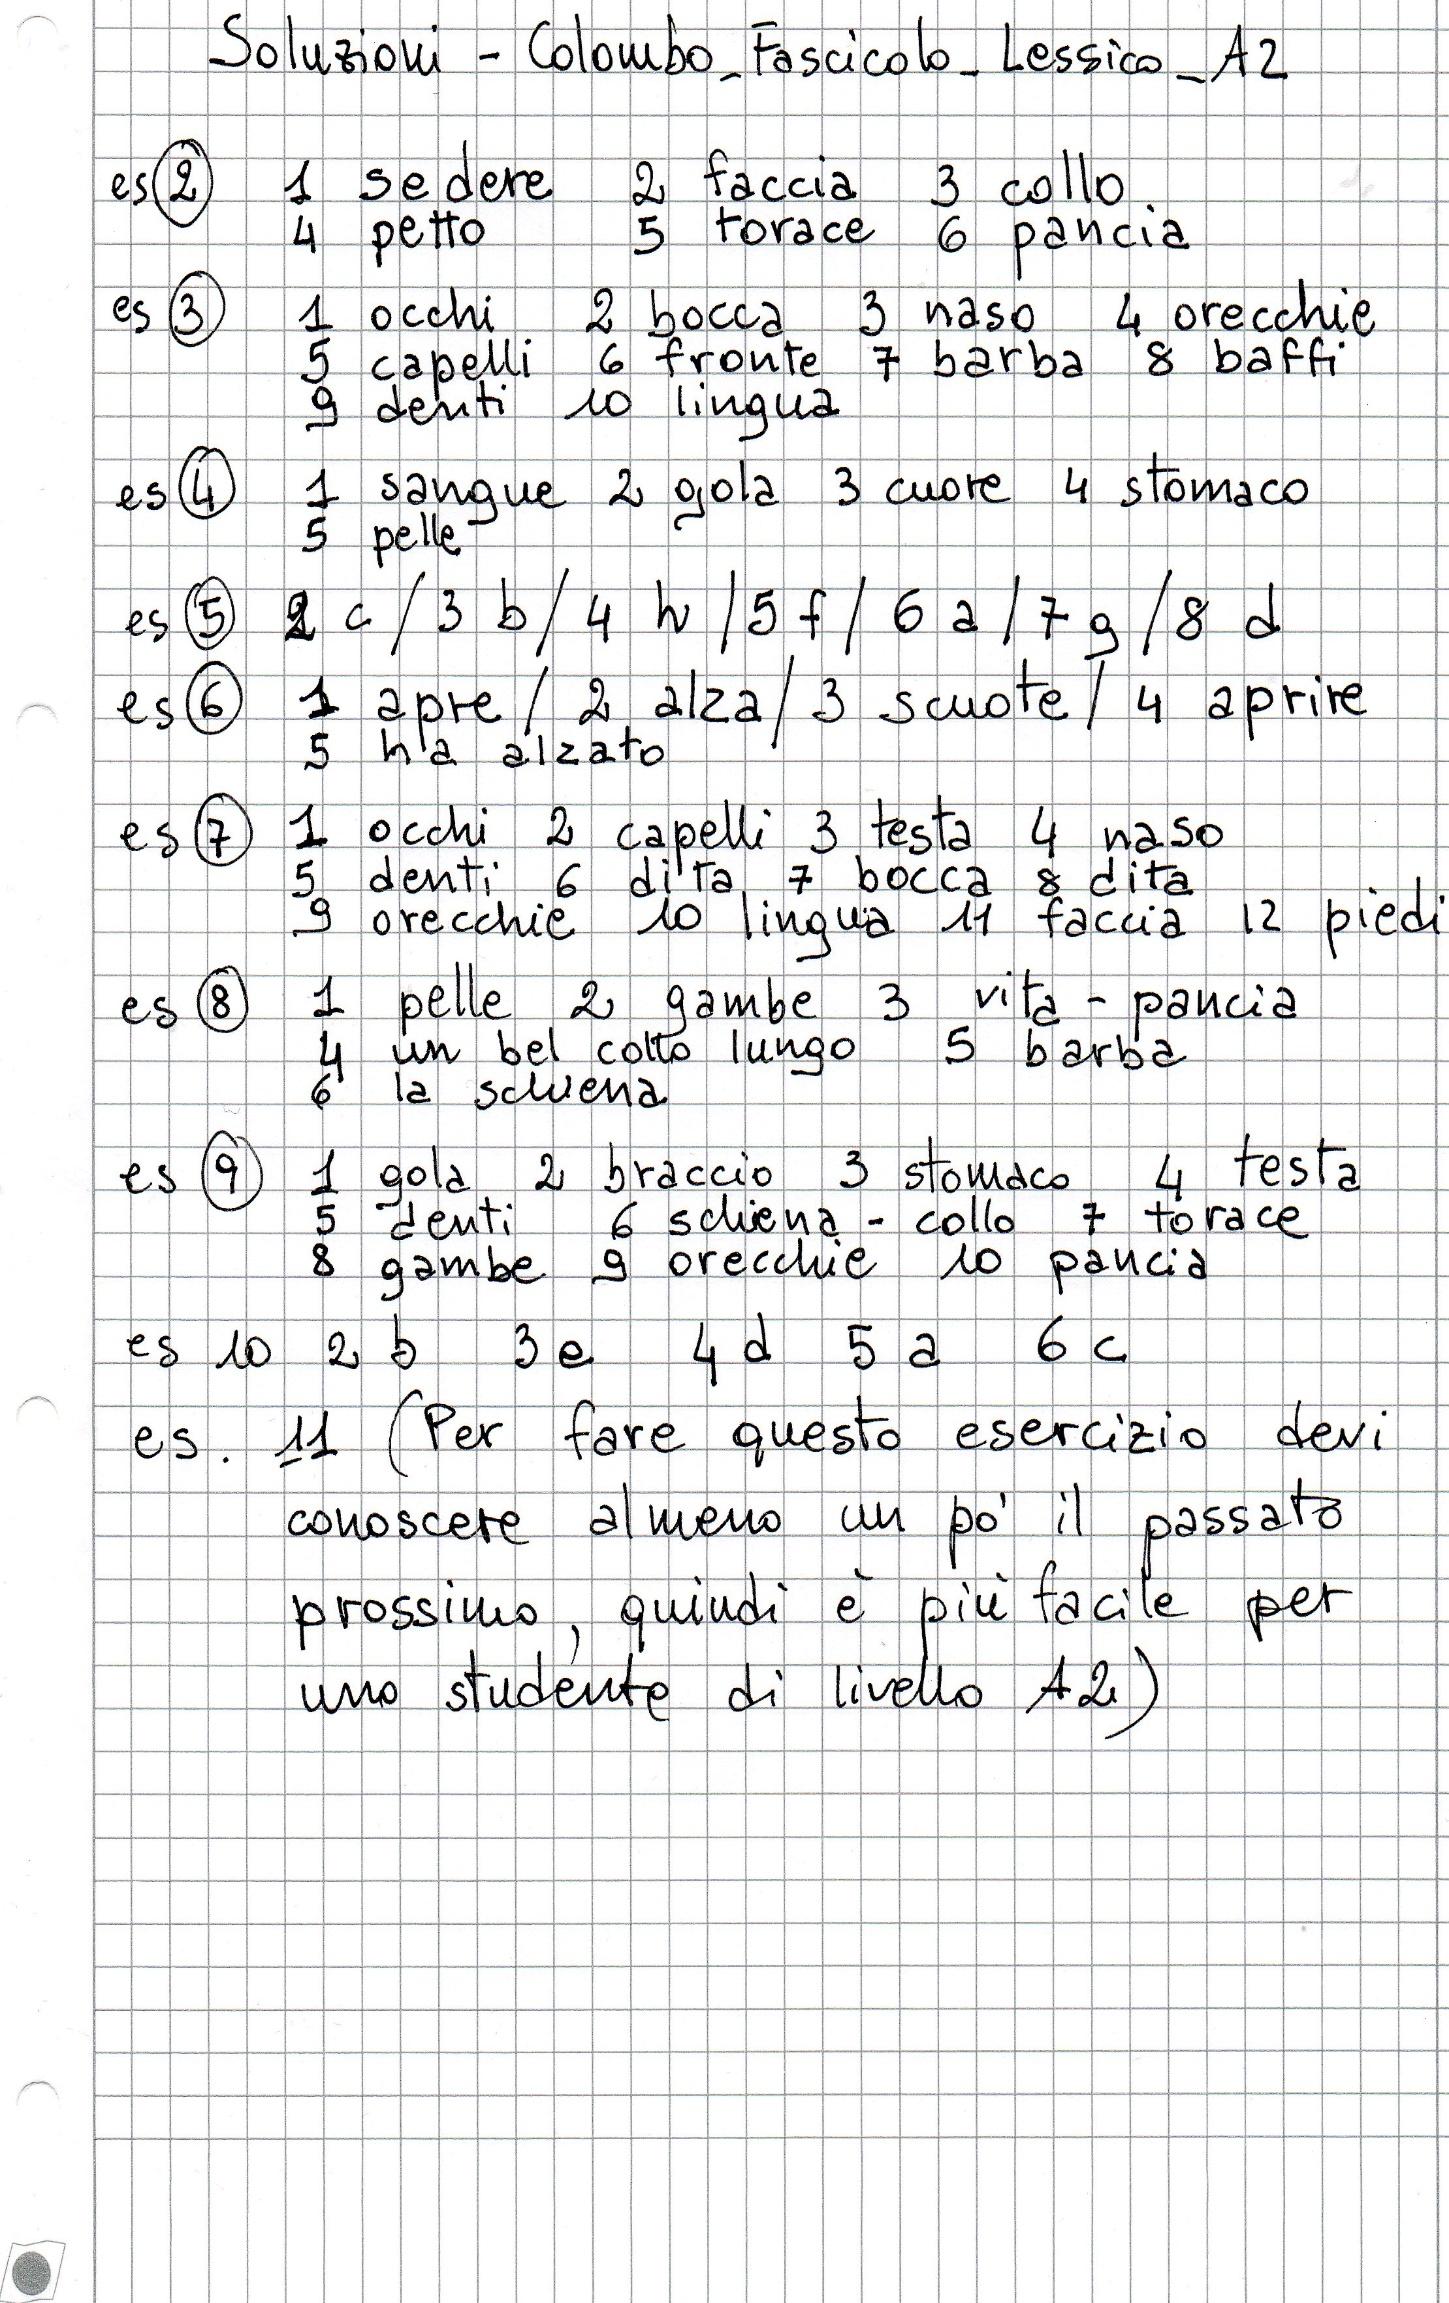 Soluzioni - Colombo_Fascicolo_Lessico_A2
es 2 1 sedere 2 faccia 3 collo
4 petto 5 torace 6 pancia
es 3 1 occhi 2 bocca 3 naso 4 orecchie
5 capelli 6 fronte 7 barba 8 baffi
9 denti 10 lingua
es 4 1 sangue 2 gola 3 cuore 4 stomaco
5 pelle
es 5 2 c / 3 b / 4 h / 5 f / 6 a / 7 g / 8 d
es 6 1 apre / 2 alza / 3 scuote / 4 aprire
5 ha alzato
es 7 1 occhi 2 capelli 3 testa 4 naso
5 denti 6 dita 7 bocca 8 dita
9 orecchie 10 lingua 11 faccia 12 piedi
es 8 1 pelle 2 gambe 3 vita - pancia
4 un bel collo lungo 5 barba
6 la schiena
es 9 1 gola 2 braccio 3 stomaco 4 testa
5 denti 6 schiena - collo 7 torace
8 gambe 9 orecchie 10 pancia
es 10 2 b 3 e 4 d 5 a 6 c
es. 11 (Per fare questo esercizio devi
conoscere almeno un po' il passato
prossimo, quindi è più facile per
uno studente di livello A2)